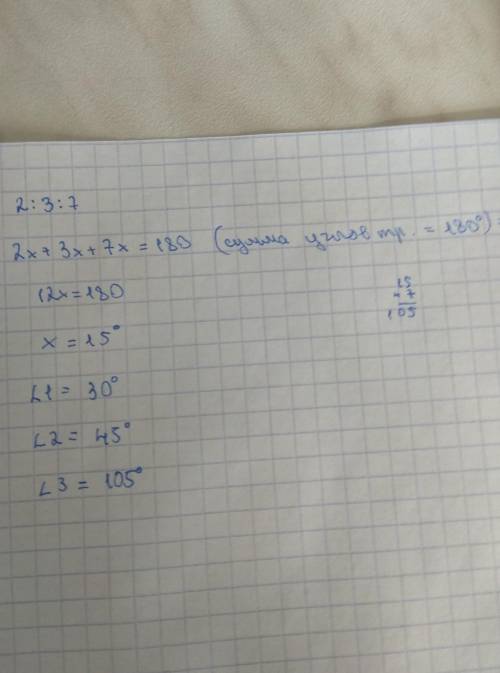 2:3:7
2x+3x+7x=180 (сумма углов тр. = 180°)
12x=180
x=15°
∠1= 30°
∠2= 45°
∠3 = 105°
15
×7
105